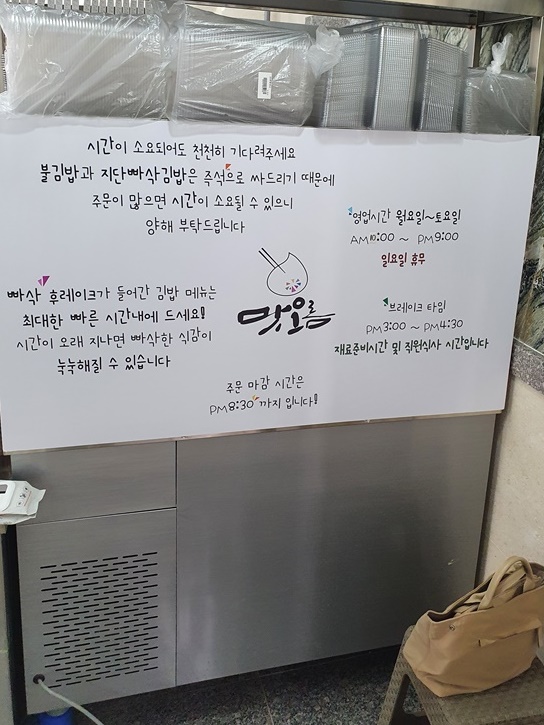 시간이 소요되어도 천천히 기다려주세요
불김밥과 지단빠삭김밥은 즉석으로 싸드리기 때문에
주문이 많으면 시간이 소요될 수 있으니
양해 부탁드립니다
영업시간 월요일~토요일
AM10:00 ~ PM9:00
일요일 휴무
빠삭 후레이크가 들어간 김밥 메뉴는
최대한 빠른 시간내에 드세요!
시간이 오래 지나면 빠삭한 식감이
눅눅해질 수 있습니다
맛오름
브레이크 타임
PM3:00 ~ PM4:30
재료준비시간 및 직원식사 시간입니다
주문 마감 시간은
PM8:30 까지 입니다!